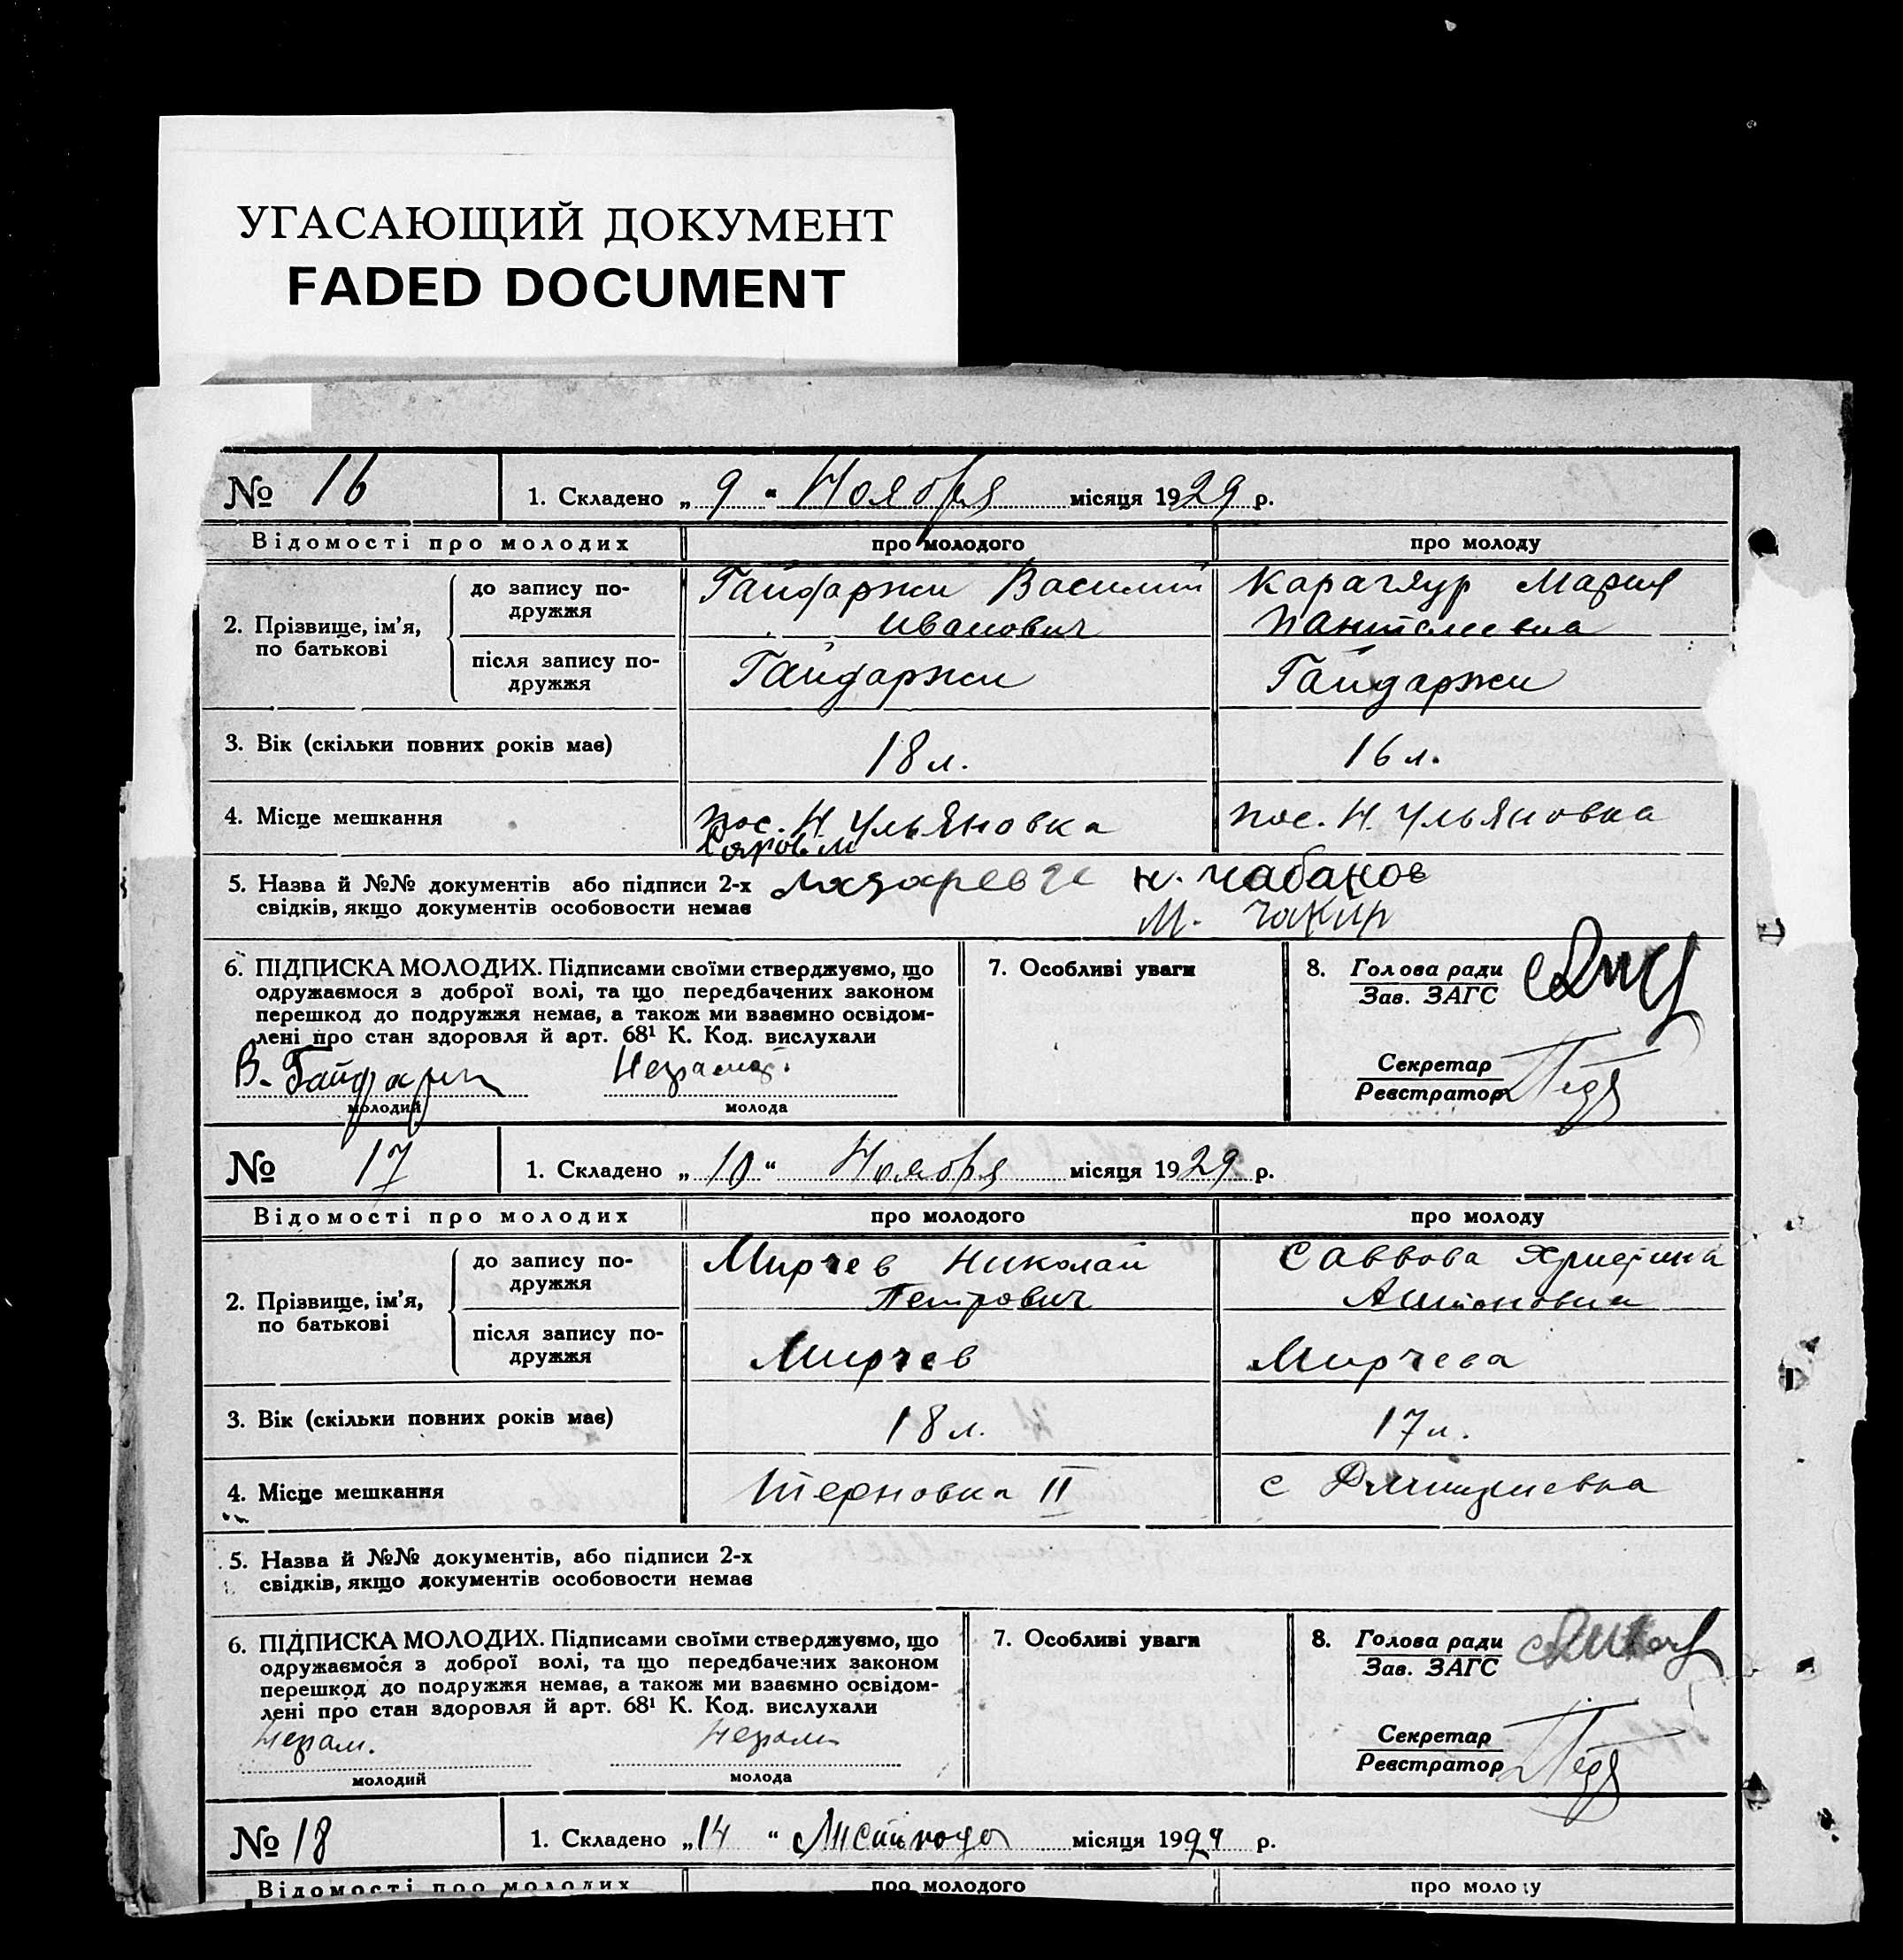 УГАСАЮЩИЙ ДОКУМЕНТ
FADED DOCUMENT
№ 16 1. Складено „ 9 “ Ноября місяця 1929 р.
Відомості про молодих про молодого про молоду
2. Прізвище, ім’я, по батькові
до запису по-
дружжя
Гайдаржи Василий
Иванович
Карагяур Мария
Пантелеевна
після запису по-
дружжя
Гайдаржи Гайдаржи
3. Вік (скільки повних років має) 18 л. 16 л.
4. Місце мешкання пос. Н. Ульяновка пос. Н. Ульяновка
5. Назва й №№ документів або підписи 2-х
свідків, якщо документів особовости немає
н. чабанов
М. Чакир
6. ПІДПИСКА МОЛОДИХ. Підписами своїми стверджуємо, що
одружаємося з доброї волі, та що передбачених законом
перешкод до подружжя немає, а також ми взаємно освідом-
лені про стан здоровля й арт. 68¹ К. Код. вислухали
В. Гайдаржи Неграмот.
молодий молода
7. Особливі уваги
8. Голова ради
Зав. ЗАГС
Секретар
Реєстратор
№ 17 1. Складено „ 10 “ Ноября місяця 1929 р.
Відомості про молодих про молодого про молоду
2. Прізвище, ім’я,
по батькові
до запису по-
дружжя
Мирчев Николай
Петрович
Саввова Христина
Антоновна
після запису по-
дружжя
Мирчев Мирчева
3. Вік (скільки повних років має) 18 л. 17 л.
4. Місце мешкання Терновка II с Дмитриевка
5. Назва й №№ документів, або підписи 2-х
свідків, якщо документів особовости немає
6. ПІДПИСКА МОЛОДИХ. Підписами своїми стверджуємо, що
одружаємося з доброї волі, та що передбачених законом
перешкод до подружжя немає, а також ми взаємно освідом-
лені про стан здоровля й арт. 68¹ К. Код. вислухали
Неграм. Неграм
молодий молода
7. Особливі уваги
8. Голова ради
Зав. ЗАГС
Секретар
Реєстратор
№ 18 1. Складено „ 14 “ Листопада місяця 1929 р.
Відомості про молодих про молодого про молоду